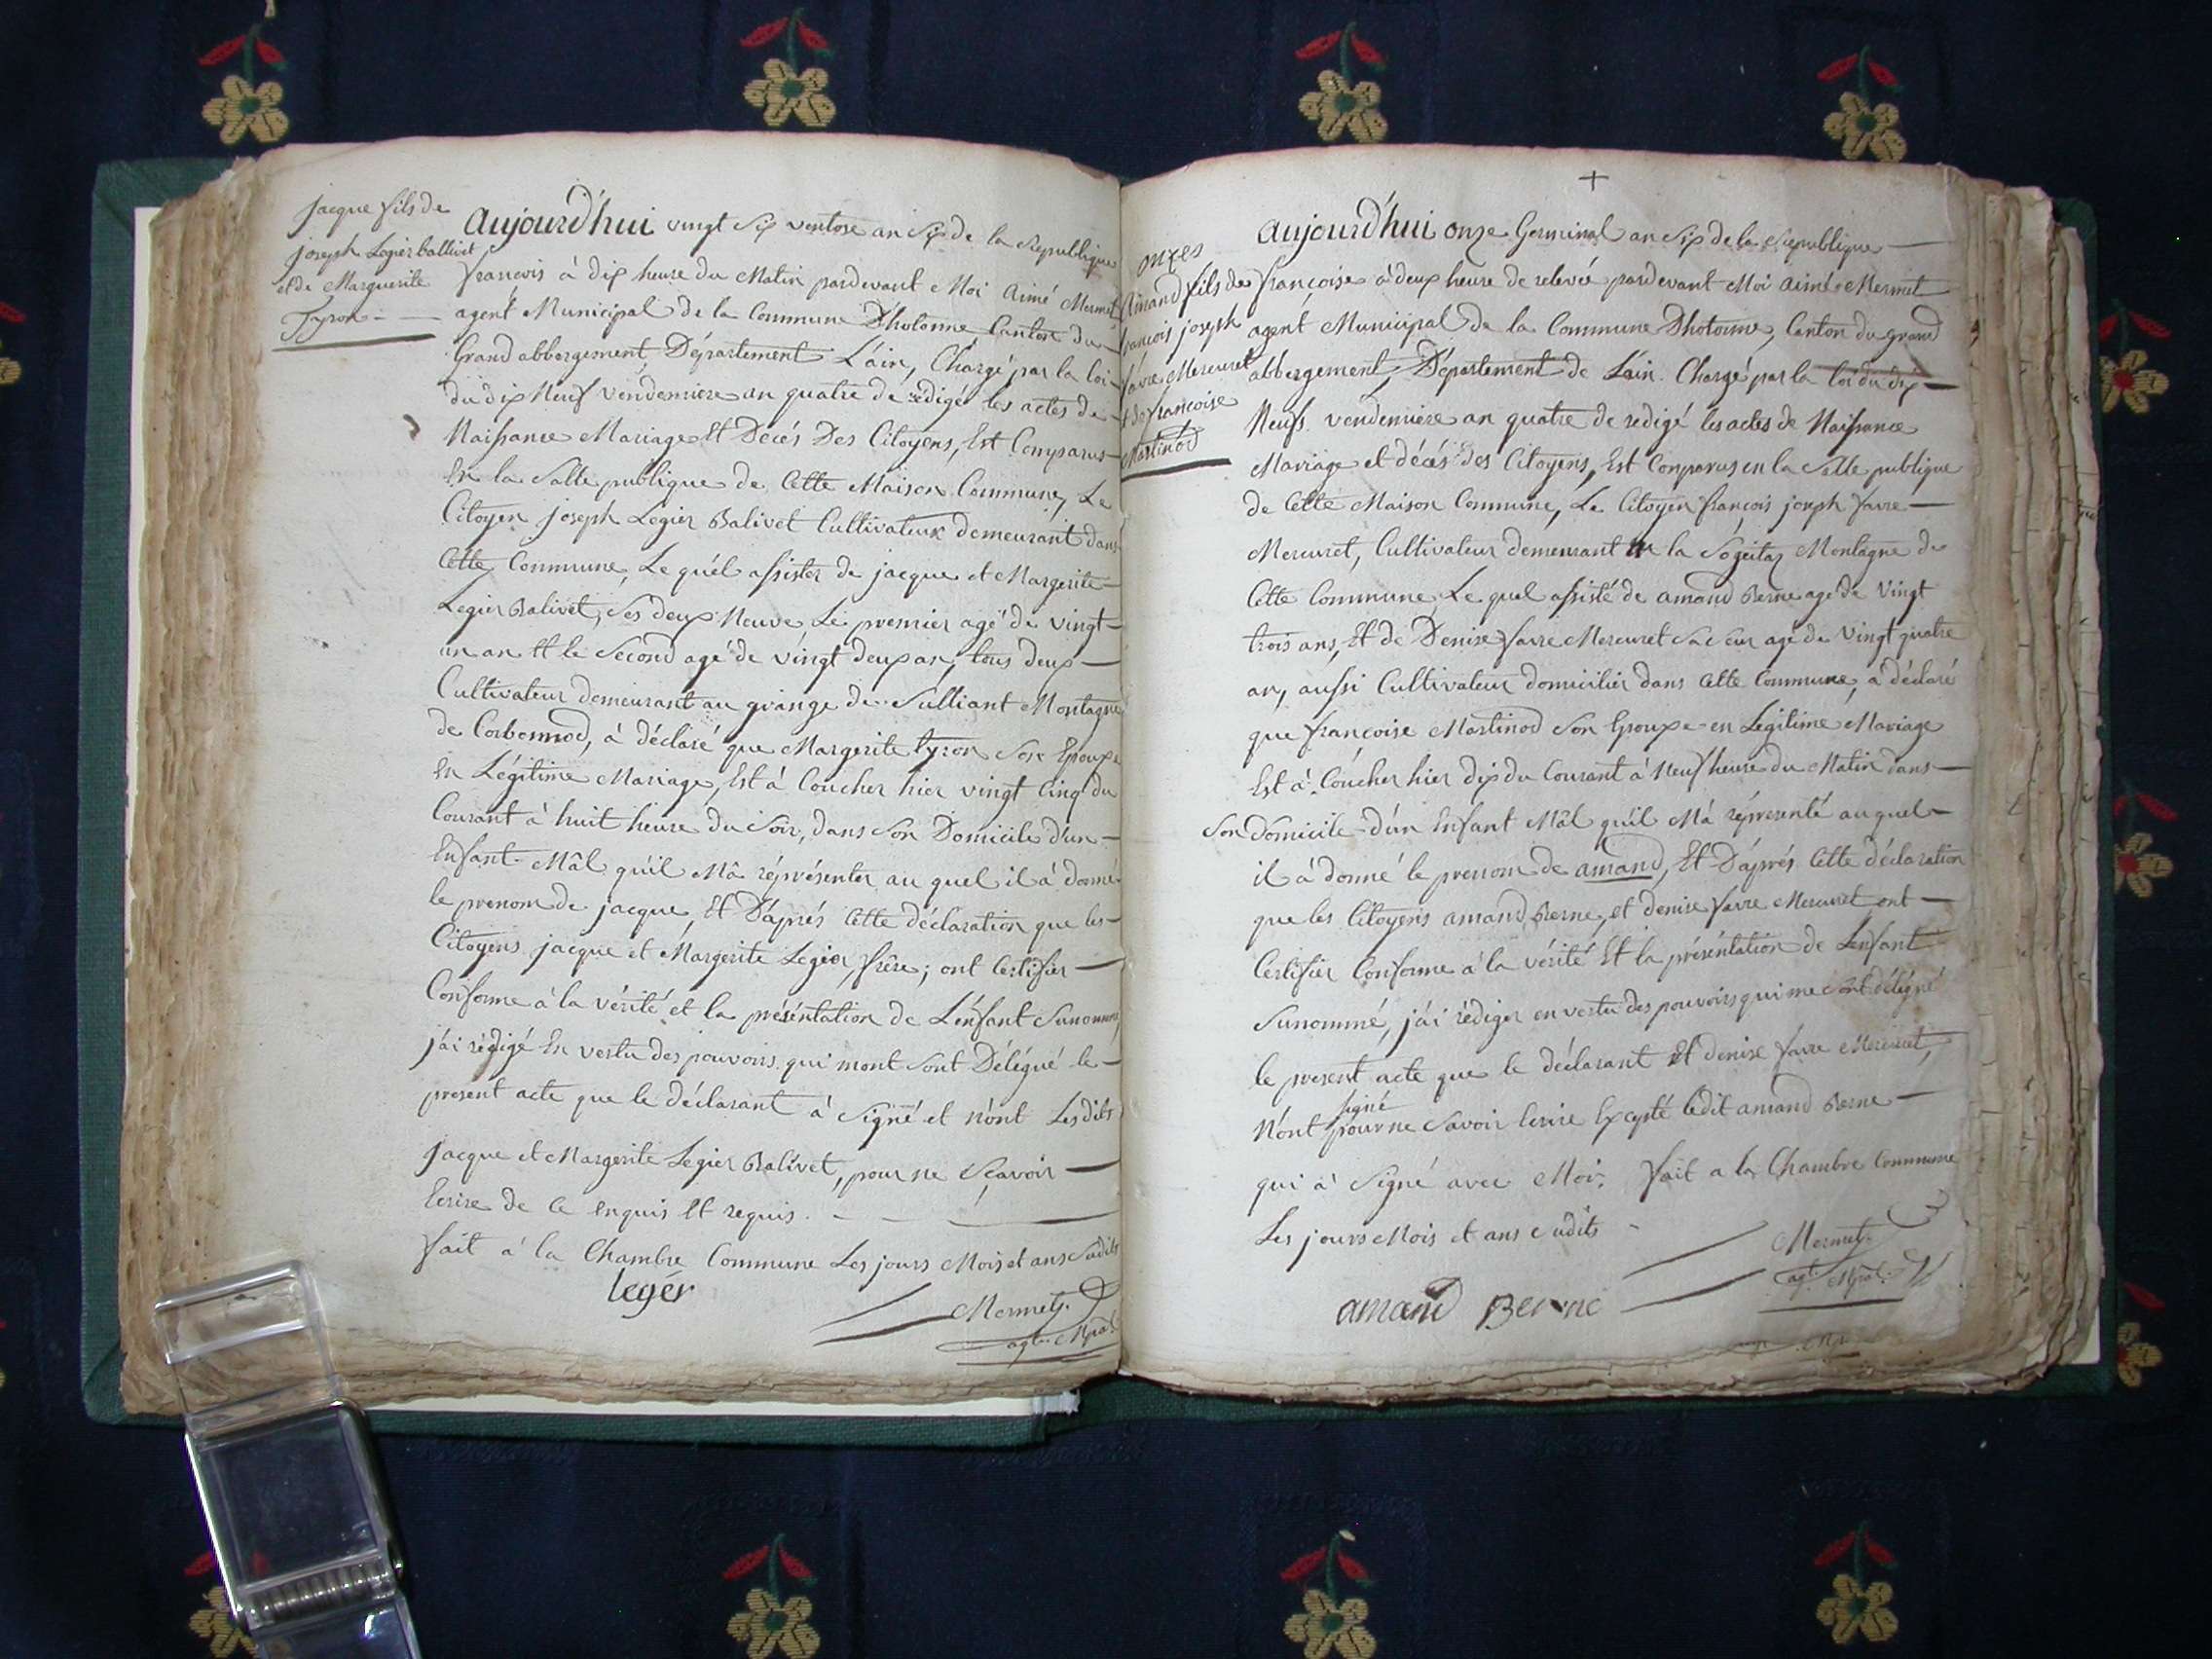 jacque fils de
joseph Legier ballivet
et de Marguerite
Tyron
aujourd'hui vingt Six ventose an Six de la Republique
francois à dix heure du Matin pardevant Moi Aimé Mermet
agent Municipal de la Commune D'hotonne Canton du
Grand abbergement, Département L'ain, Chargé par la loi
du dix Neuf vendemiere an quatre de redigé les actes de
Naissance Mariage Et Décés Des Citoyens, Est Comparus
En la Salle publique de Cette Maison Commune, Le
Citoyen joseph Legier Balivet Cultivateur demeurant dans
Cette Commune, Le quél assister de jacque et Margerite
Legier Balivet, Ses deux Neuve Le premier agé de vingt
un an Et le Second agé de vingt deux an, tous deux
Cultivateur demeurant au grange de Sulliant Montagne
de Corbonnod, à déclaré que Margerite tyron Son Epouxe
En Légitime Mariage, Est à Coucher hier vingt Cinq du
Courant à huit heure du Soir, dans Son Domicile d'un
Enfant Mâl qu'il Mâ réprésenter au quel il à donné
le prenom de jacque, Et D'áprés Cette déclaration que les
Citoyens jacque et Margerite Legier, frère; ont Certifier
Conforme à la vérité et la présentation de L'enfant Sunommé,
j'ai rédigé En vertu des pouvoirs qui mont Sont Délégué le
present acte que le déclarant à Signé et n'ont Lesdits
jacque et Margerite Legier Balivet, pour ne Sçavoir
Ecrire de Ce enquis Et requis.
fait à la Chambre Commune Les jours Mois et ans Sudits
legér
Mermet
agt. Mpal.
+
onzes
Amand fils de
francois joseph
favre Mercuret
et de francoise
Martinod
aujourd'hui onze Germinal an Six de la Republique
françoise à deux heure de relevée pardevant Moi aimé Mermet
agent Municipal de la Commune Dhotonne, Canton du grand
abbergement, Département de Lain. Chargé par la loi du dix
Neufs vendemiere an quatre de redigé les actes de Naissance
Mariage et décés des Citoyens, Est Comparus en la Salle publique
de Cette Maison Commune, Le Citoyen françois joseph favre
Mercuret, Cultivateur demeurant la Montagne de
Cette Commune, Le quel assisté de amand Berne agé de vingt
trois ans, Et de Denise favre Mercuret Sa Seur agé de Vingt quatre
an, aussi Cultivateur domicilier dans Cette Commune, à déclaré
que francoise Martinod Son Epouxe en Légitime Mariage
Est à Coucher hier dix du Courant à Neuf heure du Matin dans
Son Domicile d'un Enfant Mâl qu'il Mâ réprésenté au quel
il à donné le prenom de amand, Et D'áprés Cette déclaration
que les Citoyens amand Berne, et denise favre Mercuret ont
Certifier Conforme à la vérité Et la présentation de L'enfant
Sunommé, j'ai rédiger en vertu des pouvoirs qui me Sont délégué
le present acte que le déclarant Et denise favre Mercuret,
N'ont signé pour ne Savoir Ecrire Excepté ledit amand Berne
qui à Signé avec Moi. fait a la Chambre Commune
Les jours Mois et ans Sudits
Mermet
agt. Mpal.
amand Berne